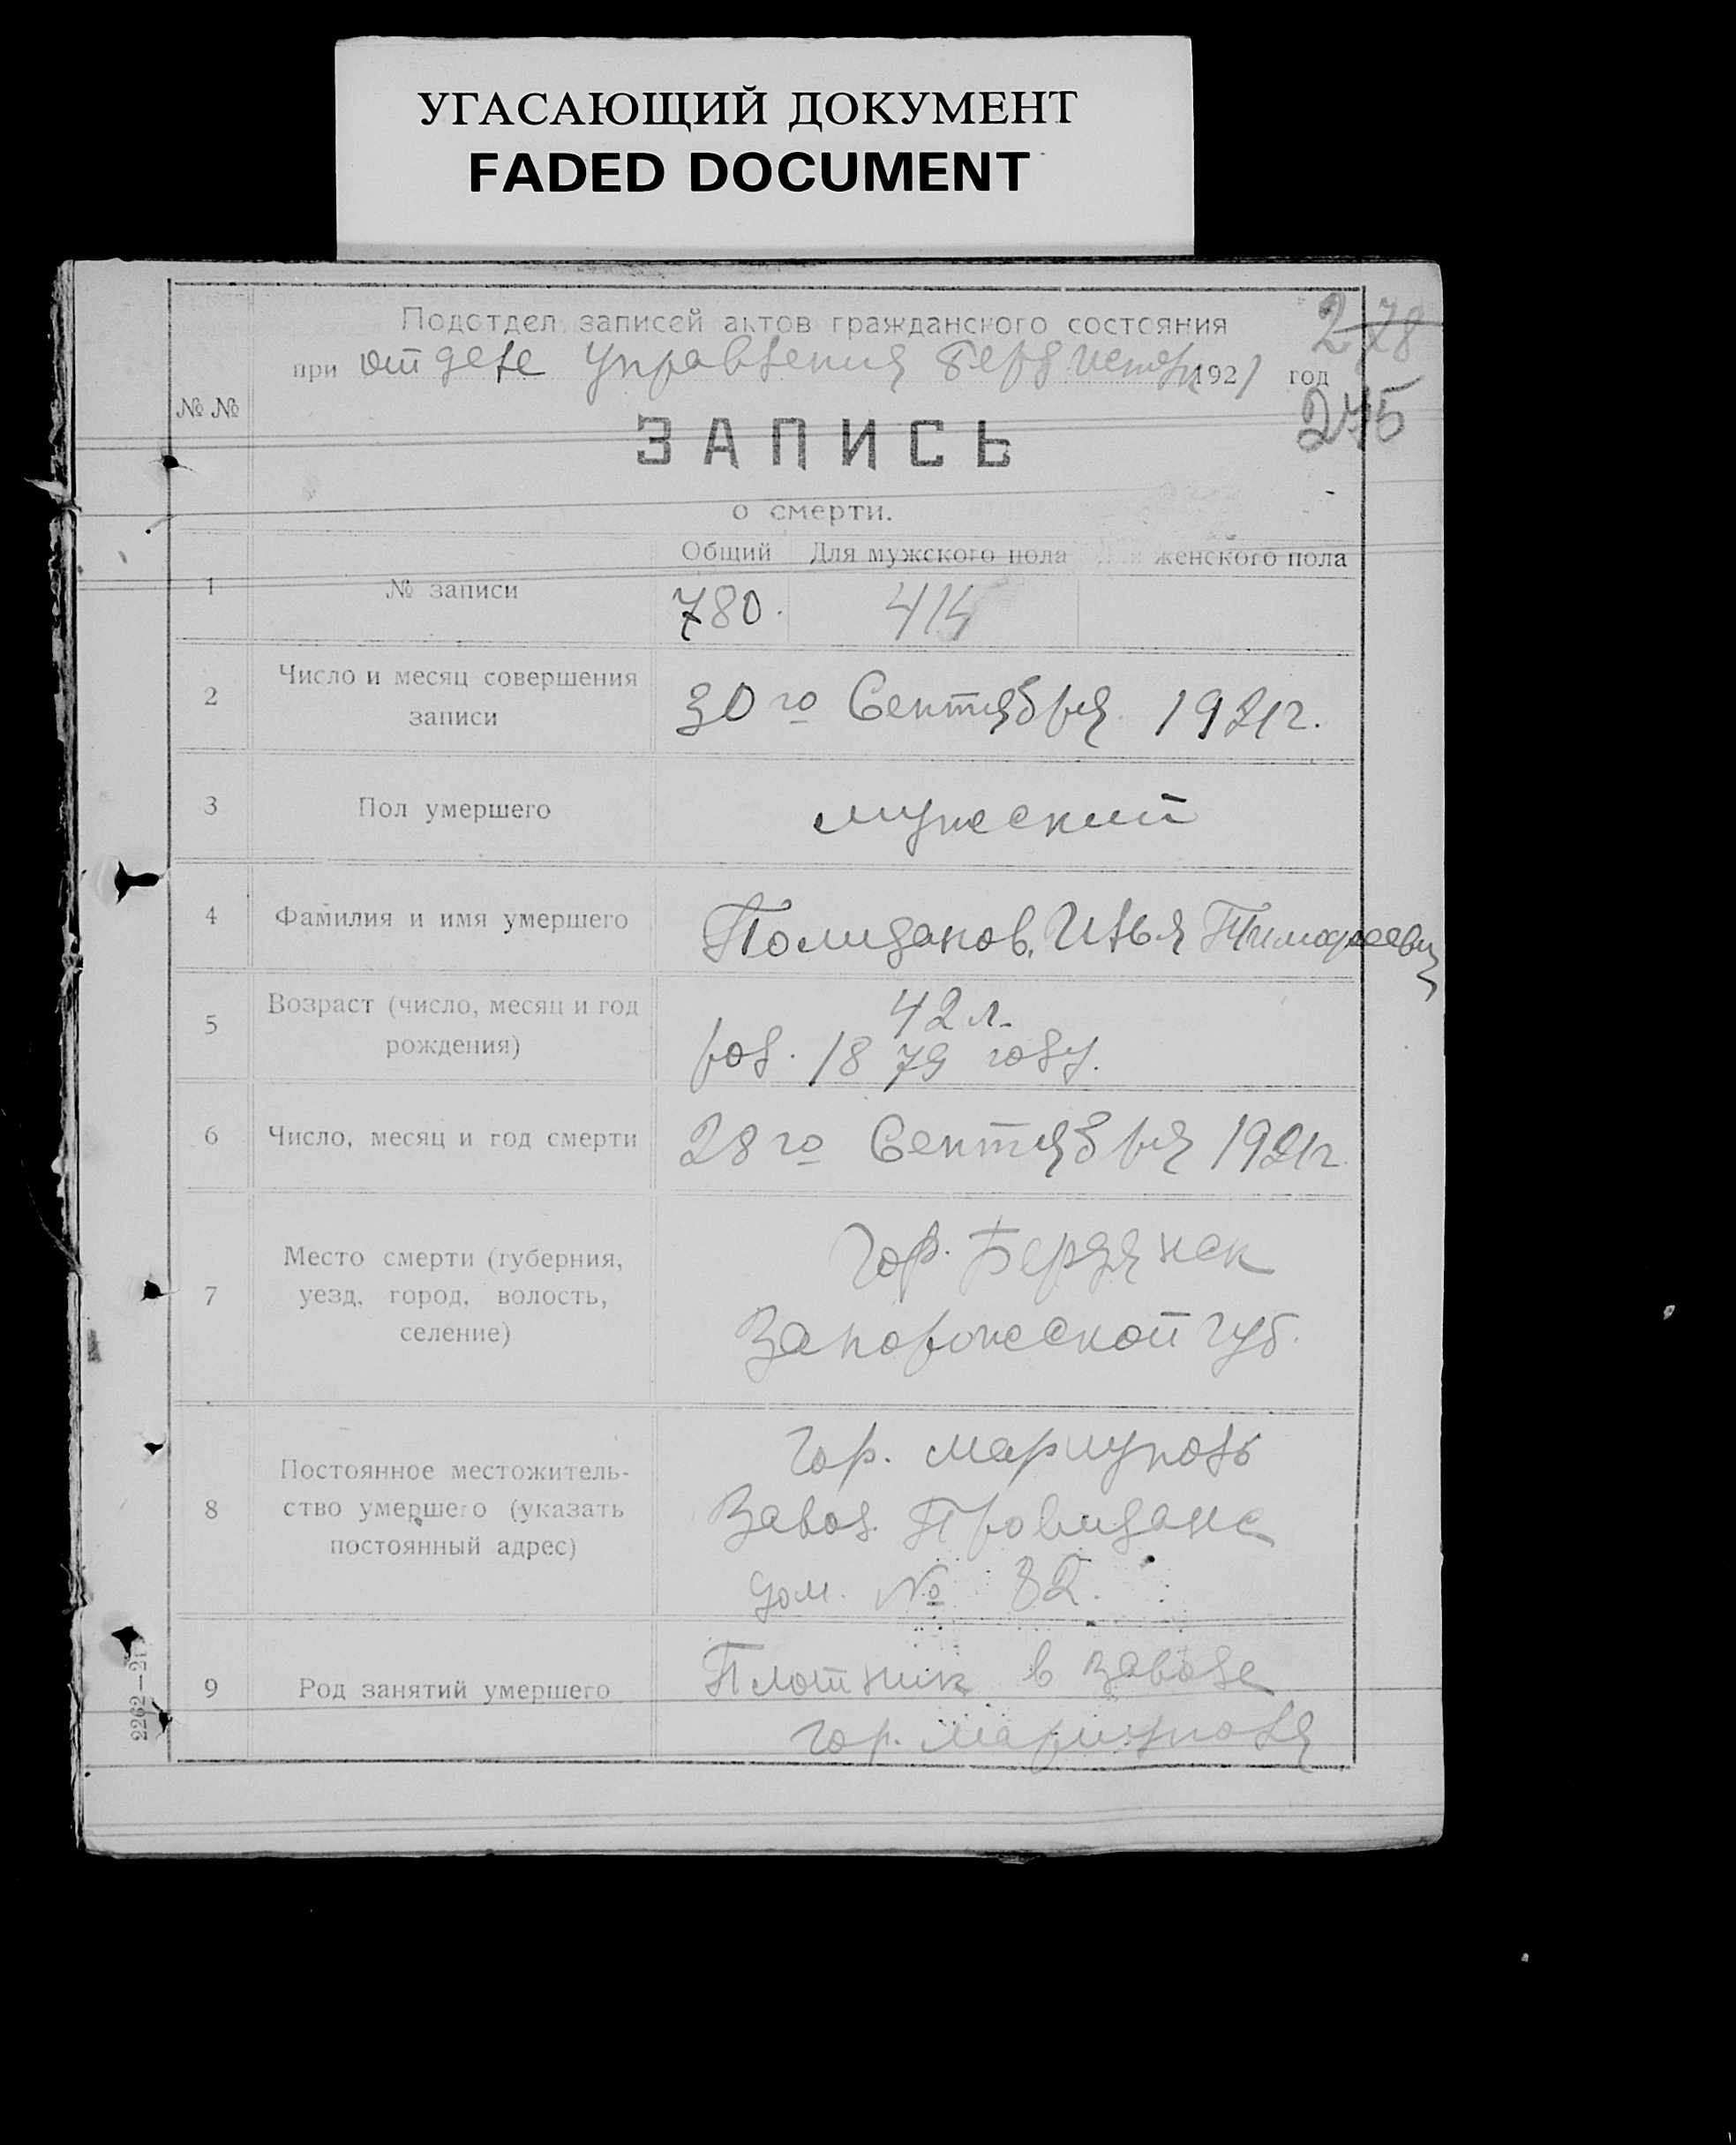 УГАСАЮЩИЙ ДОКУМЕНТ
FADED DOCUMENT
Подотдел записей актов гражданского состояния
278
при отделе Управления 1921 год
275
№ №
ЗАПИСЬ
о смерти.
Общий Для мужского пола Для женского пола
1 № записи 780. 414
2 Число и месяц совершения
записи
30 го Сентября 1921 г.
3 Пол умершего мужеский
4 Фамилия и имя умершего Полиданов, Илья Тимофеевич
5 Возраст (число, месяц и год
рождения)
42 л.
род. 1879 году.
6 Число, месяц и год смерти 28 го Сентября 1921 г.
7 Место смерти (губерния,
уезд, город, волость,
селение)
Гор. Бердянск
Запорожеской губ.
8 Постоянное местожитель-
ство умершего (указать
постоянный адрес)
Гор. Мариуполь
Завод. Провиданс
дом. № 32.
9 Род занятий умершего Плотник в заводе
гор. Мариуполя